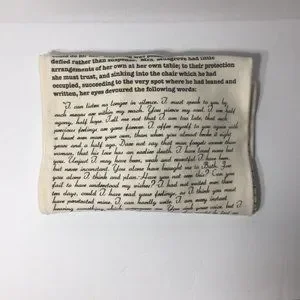 defied rather than suspense. Mrs. Musgrove had little
arrangements of her own at her own table; to their protection
she must trust, and sinking into the chair which he had
occupied, succeeding to the very spot where he had leaned and
written, her eyes devoured the following words:
"I can listen no longer in silence. I must speak to you by
such means as are within my reach. You pierce my soul. I am half
agony, half hope. Tell me not that I am too late, that such
precious feelings are gone forever. I offer myself to you again with
a heart even more your own, than when you almost broke it eight
years and a half ago. Dare not say that man forgets sooner than
woman, that his love has an earlier death. I have loved none but
you. Unjust I may have been, weak and resentful I have been,
but never inconstant. You alone have brought me to Bath. For
you alone I think and plan. Have you not seen this? Can you
fail to have understood my wishes? I had not waited even these
ten days, could I have read your feelings, as I think you must
have penetrated mine. I can hardly write. I am every instant
hearing something which